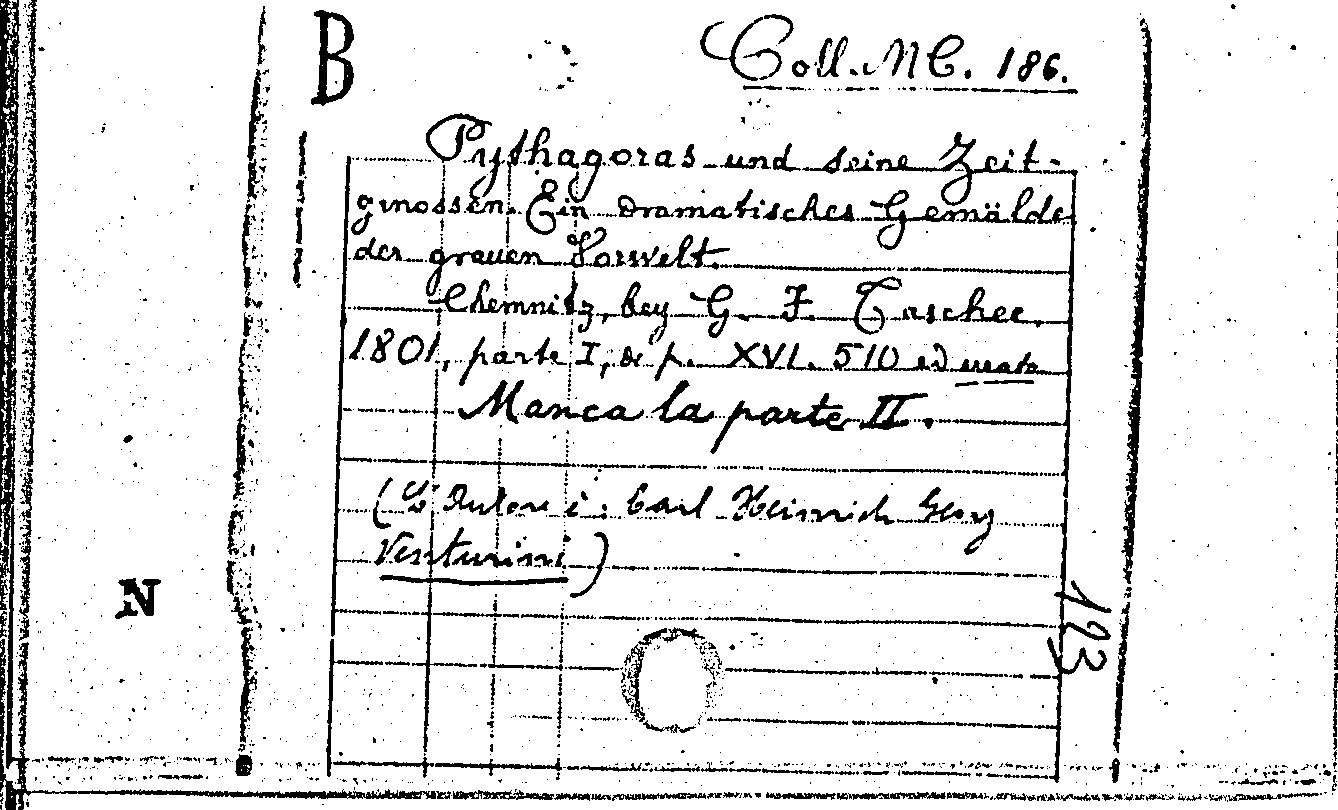 B
Coll. MC. 186.
Pythagoras und seine Zeit-
ginossen. Ein dramatisches Gemälde
der grauen Vorwelt.
Chemnitz, bey G. F. Taschee.
1801, parte I, di p. XVI. 510 ed
Manca la parte II.
(L'Autore è: Carl Heinrich Georg
Venturini)
N
123